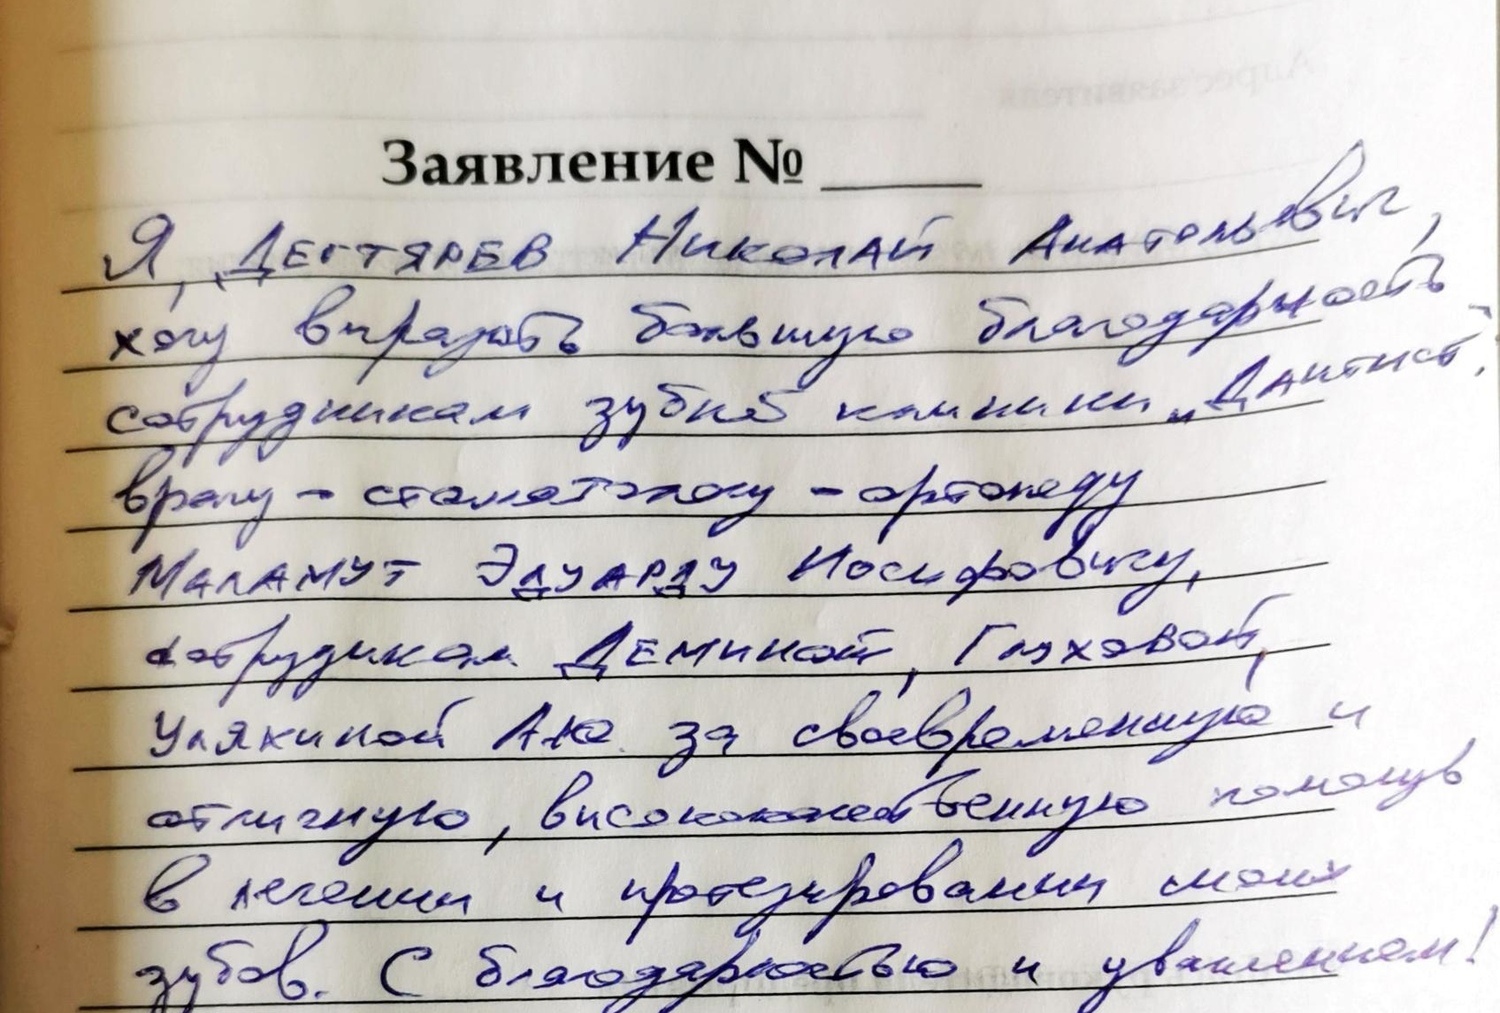 Заявление № ______
Я, Дегтярев Николай Анатольевич,
хочу выразить большую благодарность
сотрудникам зубной клиники „Дантист",
врачу - стоматологу - ортопеду
Маламут Эдуарду Иосифовичу,
сотрудикам Деминой, Глуховой,
Улякиной А.Ю. за своевременную и
отличную, высококачественную помощь
в лечении и протезировании моих
зубов. С благодарностью и уважением!